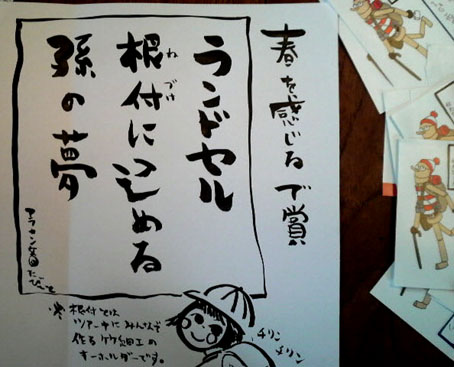 春を感じるで賞
ランドセル
根付に込める
ねづけ
孫の夢
※根付とは
ツアーチにみんなで
作る竹細工の
キーホルダーです。
チリン
チリン